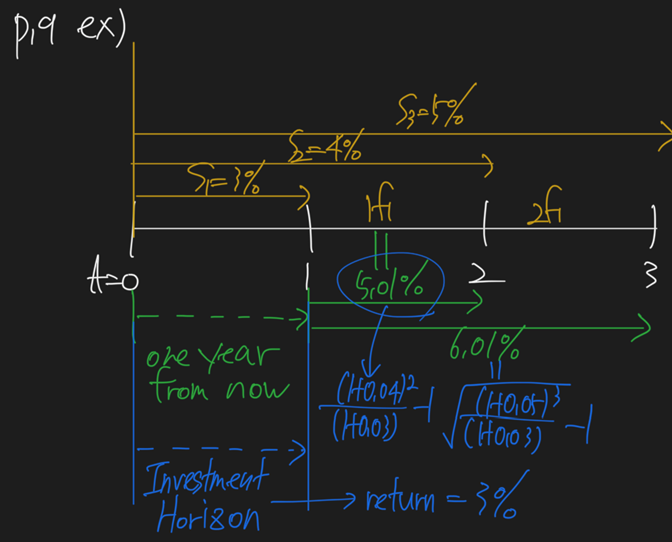 p,q ex)
S₃=5%
S₂=4%
S₁=3%
1f1
2f1
t=0
1
2
3
5.01%
6.01%
one year
from now
(1+0.04)²/(1+0.03) -1
√((1+0.05)³/(1+0.03)) -1
Investment
Horizon
return = 3%